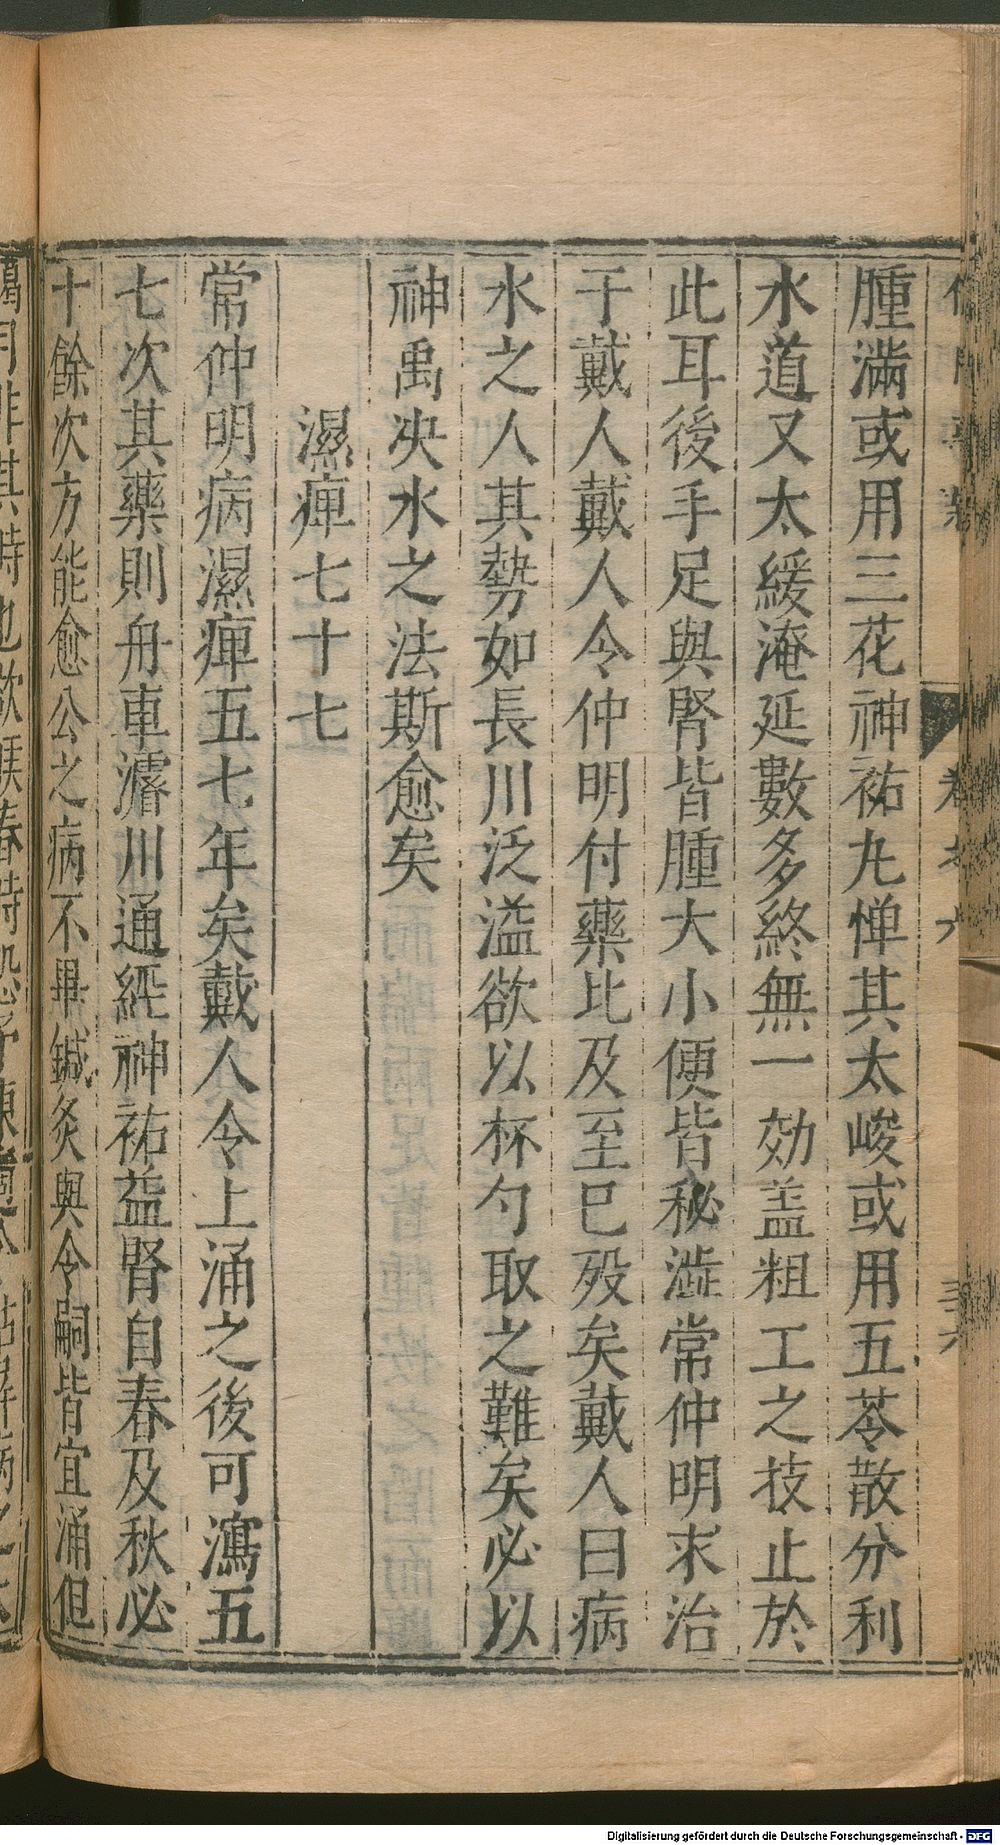 腫滿或用三花神祐丸憚其太峻或用五苓散分利
水道又太緩淹延數多終無一効盖粗工之技止於
此耳後手足與腎皆腫大小便皆秘澁常仲明求治
于戴人戴人令仲明付藥比及至已歿矣戴人曰病
水之人其勢如長川泛溢欲以杯勺取之難矣必以
神禹决水之法斯愈矣
濕痺七十七
常仲明病濕痺五七年矣戴人令上涌之後可瀉五
七次其藥則舟車濬川通經神祐益腎自春及秋必
十餘次方能愈公之病不畢鍼灸與令嗣皆宜涌但
Digitalisierung gefördert durch die Deutsche Forschungsgemeinschaft - DFG